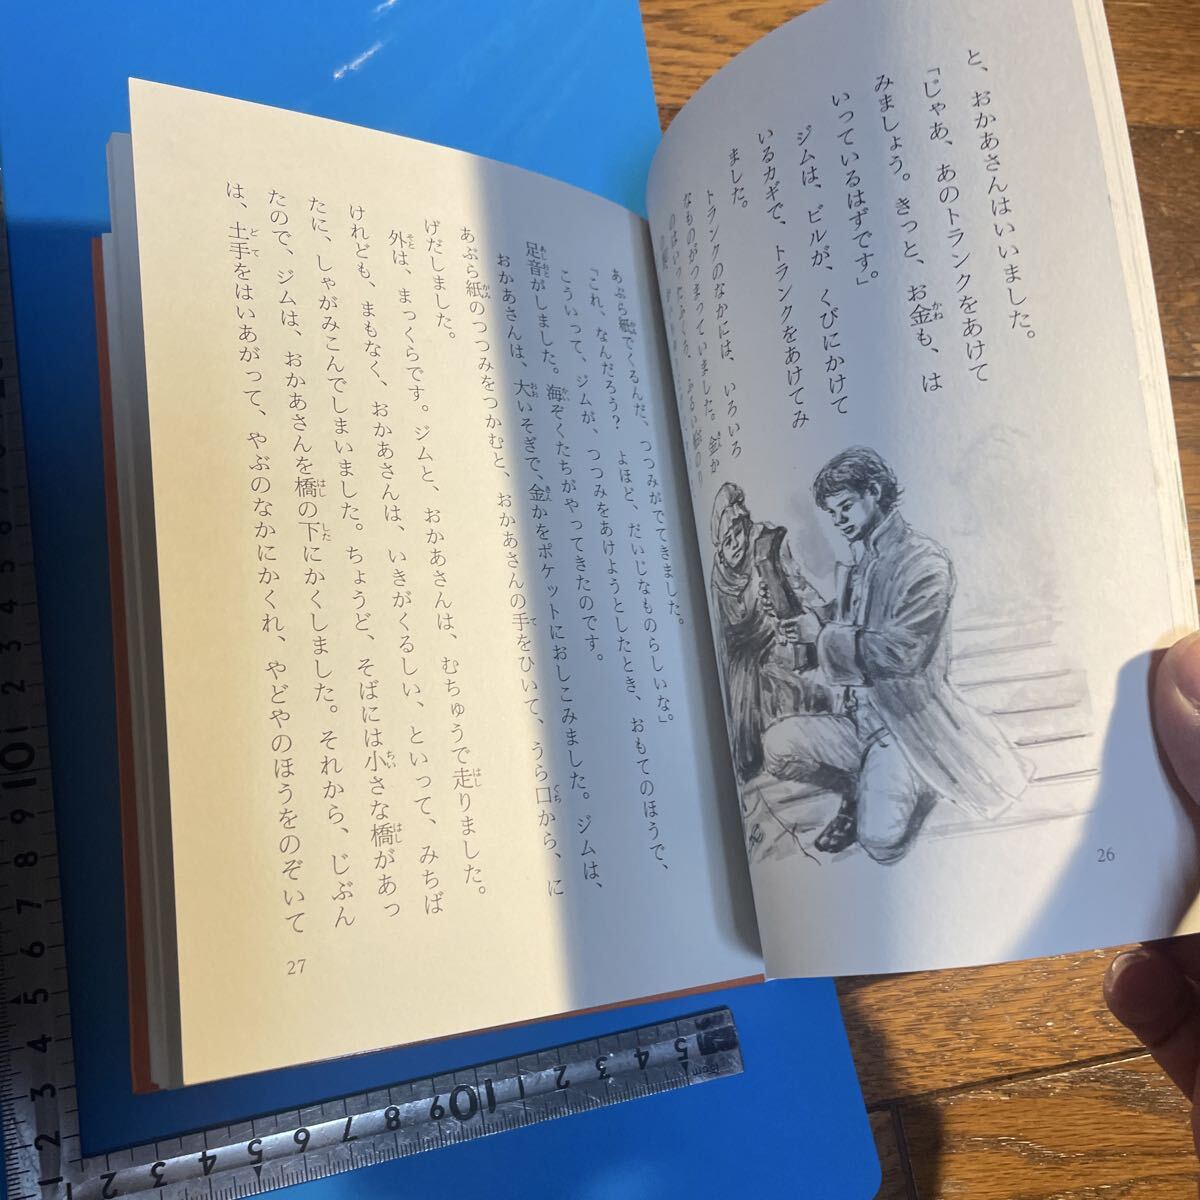 と、おかあさんはいいました。
「じゃあ、あのトランクをあけて
みましょう。きっと、お金も、は
いっているはずです。」
ジムは、ビルが、くびにかけて
いるカギで、トランクをあけてみ
ました。
トランクのなかには、いろいろ
なものがつまっていました。金か
のはいったふくろ、ふるい
26
あぶら紙でくるんだ、つつみがでてきました。
「これ、なんだろう？　よほど、だいじなものらしいな。」
こういって、ジムが、つつみをあけようとしたとき、おもてのほうで、
足音がしました。海ぞくたちがやってきたのです。
おかあさんは、大いそぎで、金かをポケットにおしこみました。ジムは、
あぶら紙のつつみをつかむと、おかあさんの手をひいて、うら口から、に
げだしました。
外は、まっくらです。ジムと、おかあさんは、むちゅうで走りました。
けれども、まもなく、おかあさんは、いきがくるしい、といって、みちば
たに、しゃがみこんでしまいました。ちょうど、そばには小さな橋があっ
たので、ジムは、おかあさんを橋の下にかくしました。それから、じぶん
は、土手をはいあがって、やぶのなかにかくれ、やどやのほうをのぞいて
27